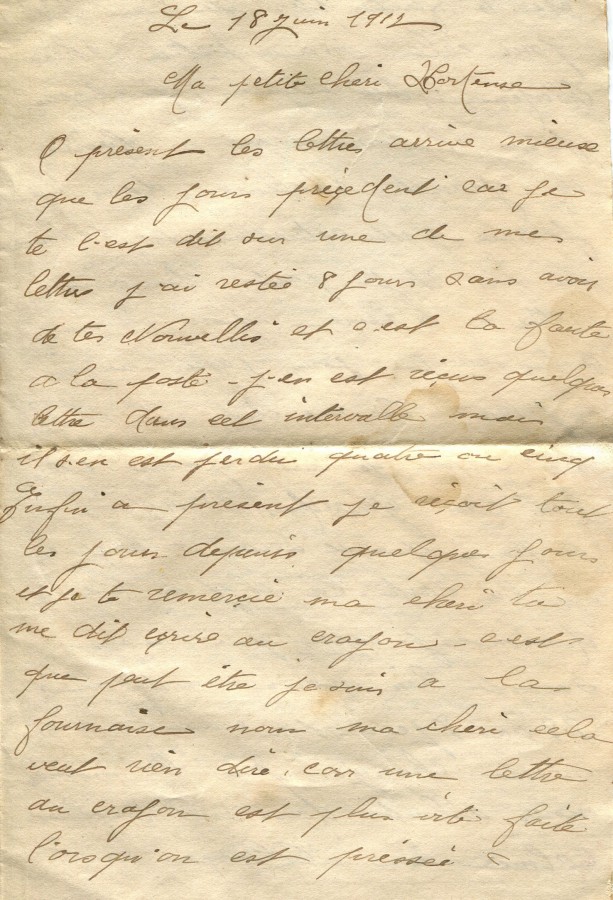 Le 18 Juin 1912
Ma petite cheri Hortense
A présent les lettres arrive mieuse
que les jours précédent car je
te l'est dit sur une de mes
lettres j'ai restée 8 jours sans avoir
de tes Nouvelles et c'est la faute
a la poste - j'en est reçus quelques
lettre dans cet intervalle mais
il s'en est perdu quatre ou cinq
Enfin a présent je reçoit tout
les jours depuis quelques jours
et je te remercie ma cheri tu
me dit écrire au crayon - c'est
que peut être je suis a la
fournaise nom ma cheri cela
veut rien dire, car une lettre
au crayon est plus vite faite
l'orsqu'on est pressée